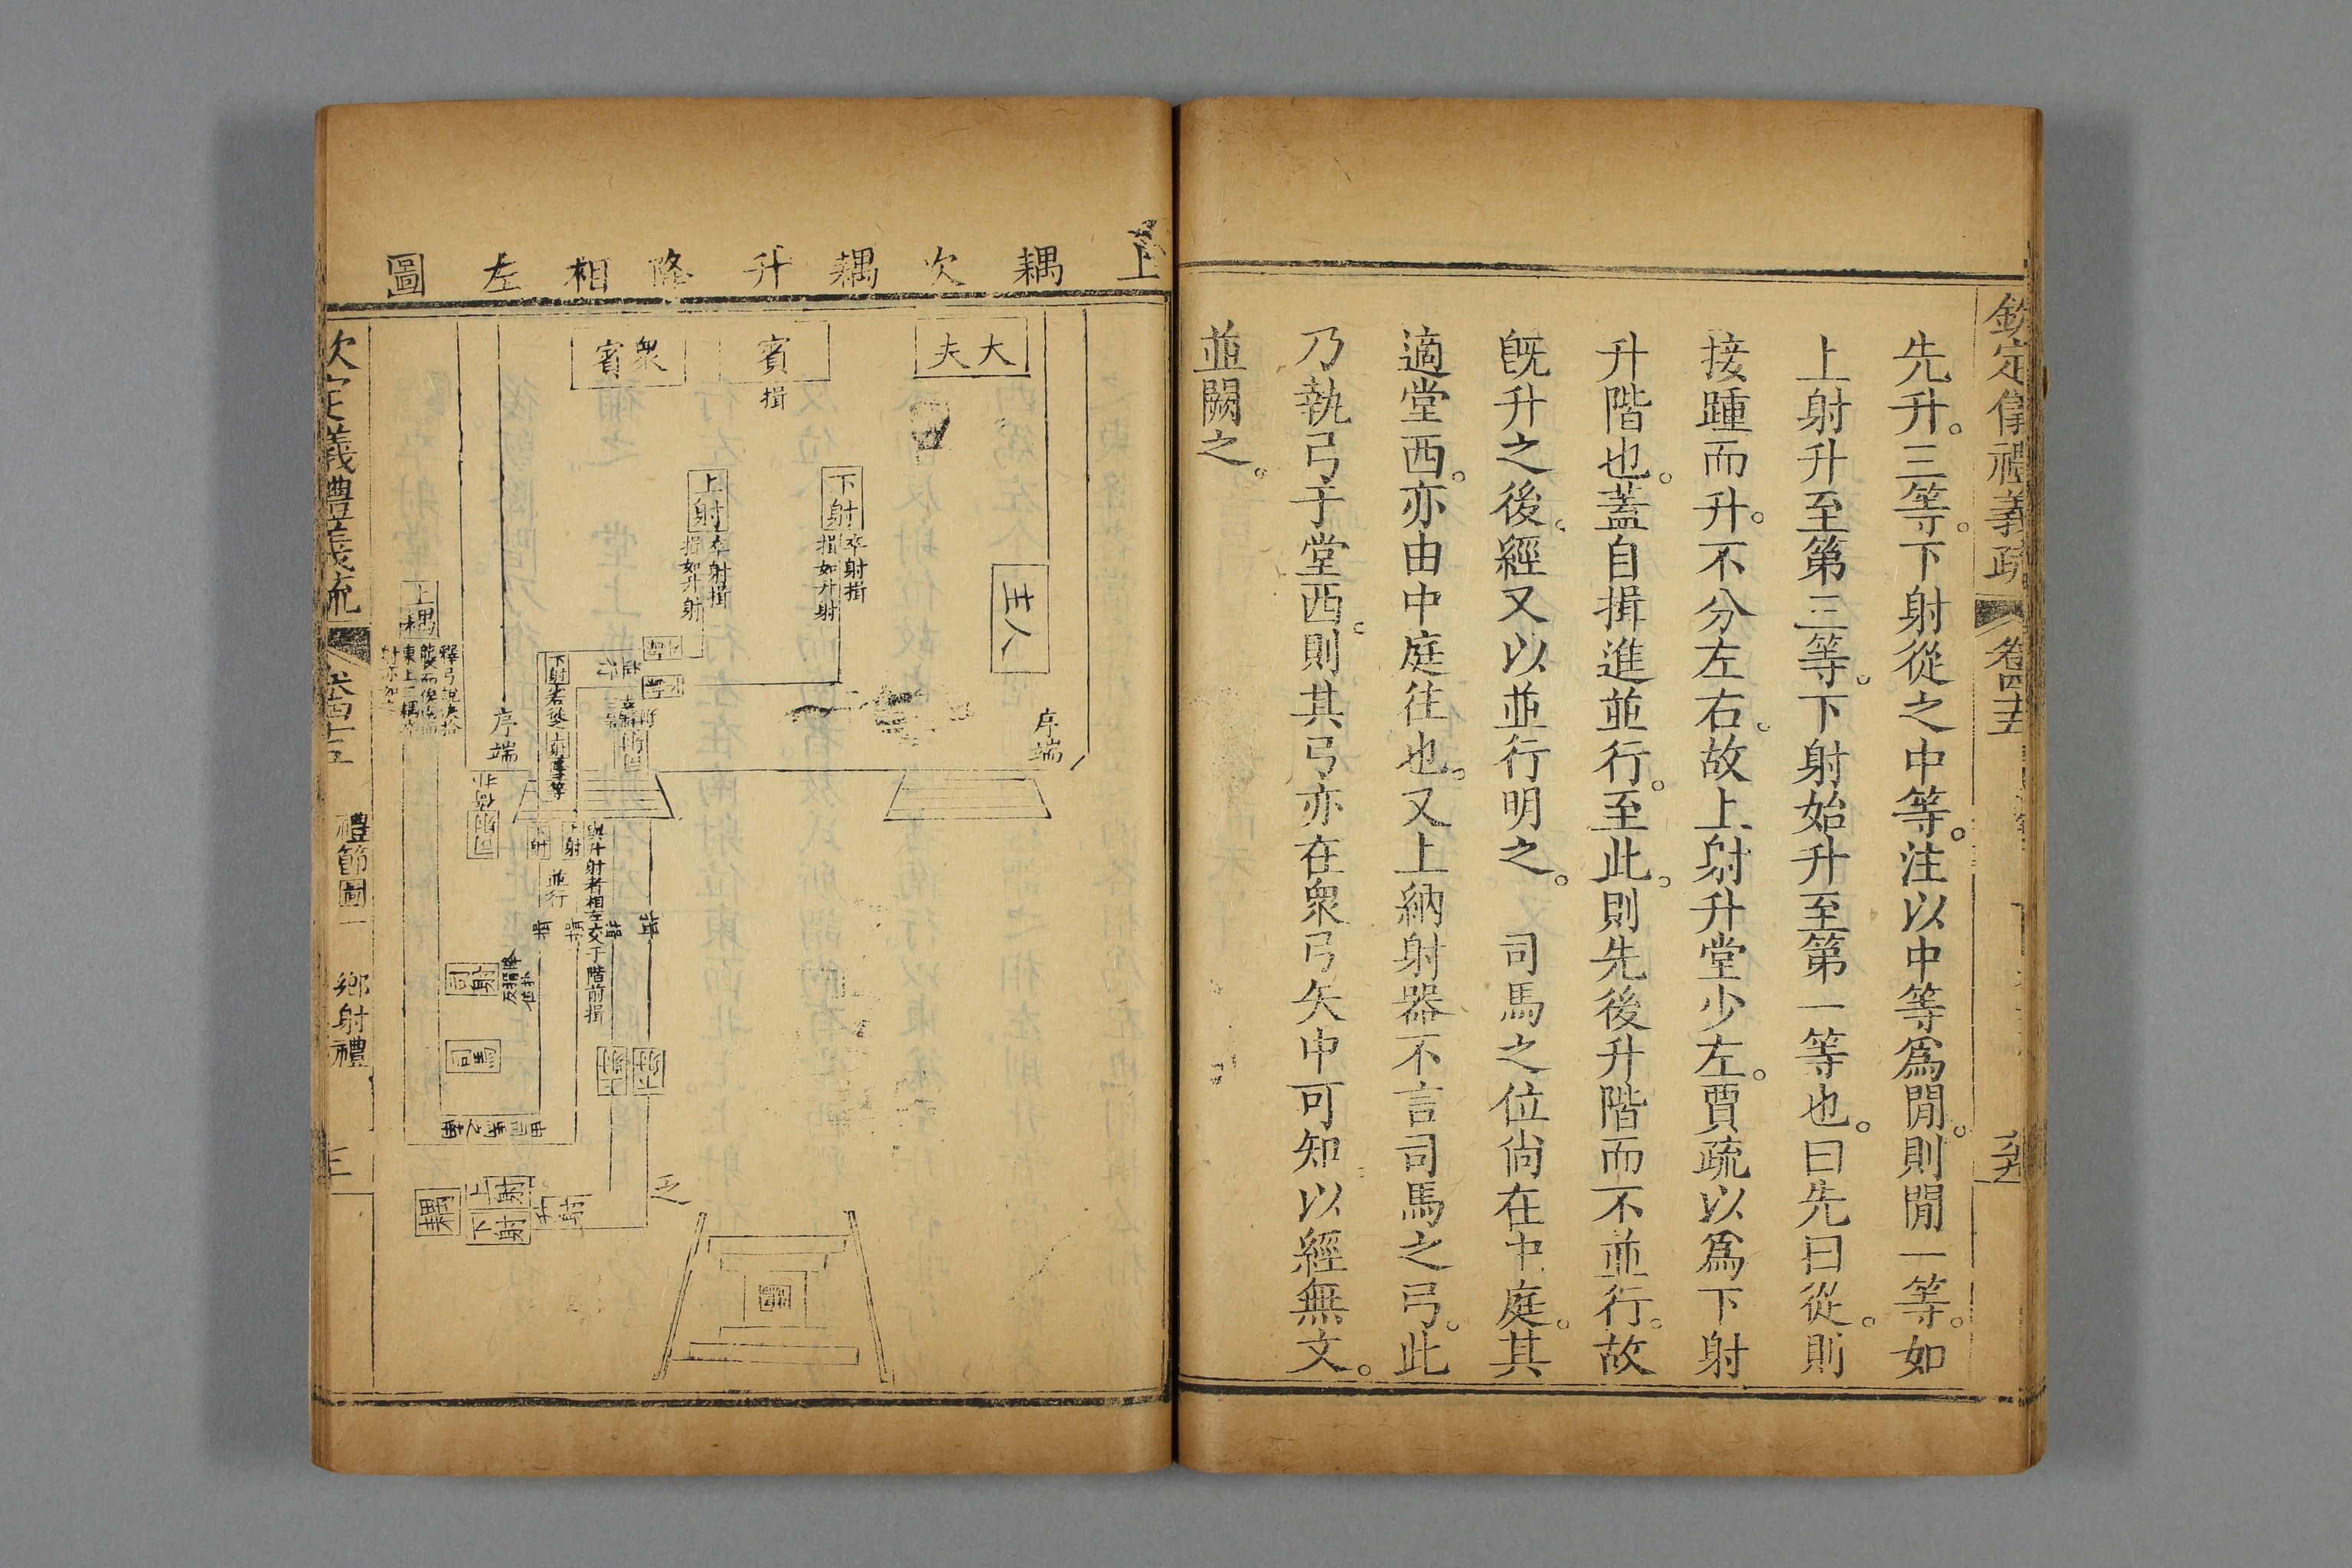 欽定儀禮義疏
卷四十五
先升。三等。下射從之中等。注以中等爲閒。則閒一等。如
上射升至第三等。下射始升至第一等也。曰先曰從。則
接踵而升。不分左右。故上射升堂少左。賈疏以爲下射
升階也。蓋自揖進並行。至此。則先後升階而不並行。故
旣升之後。經又以並行明之。 司馬之位尙在中庭。其
適堂西。亦由中庭往也。又上納射器不言司馬之弓。此
乃執弓于堂西。則其弓亦在衆弓矢中可知以經無文。
並闕之。
上耦次耦升降相左圖
大夫
賓
揖
衆賓
主人
下射
卒射揖
揖如升射
上射
卒射揖
揖如升射
序端
序端
上射
下射
並行
揖
揖
與升射者相左交于階前揖
上耦
司射
司馬
乏
上射
下射
升射
耦
欽定義禮義疏
卷四十五
禮節圖一
鄉射禮